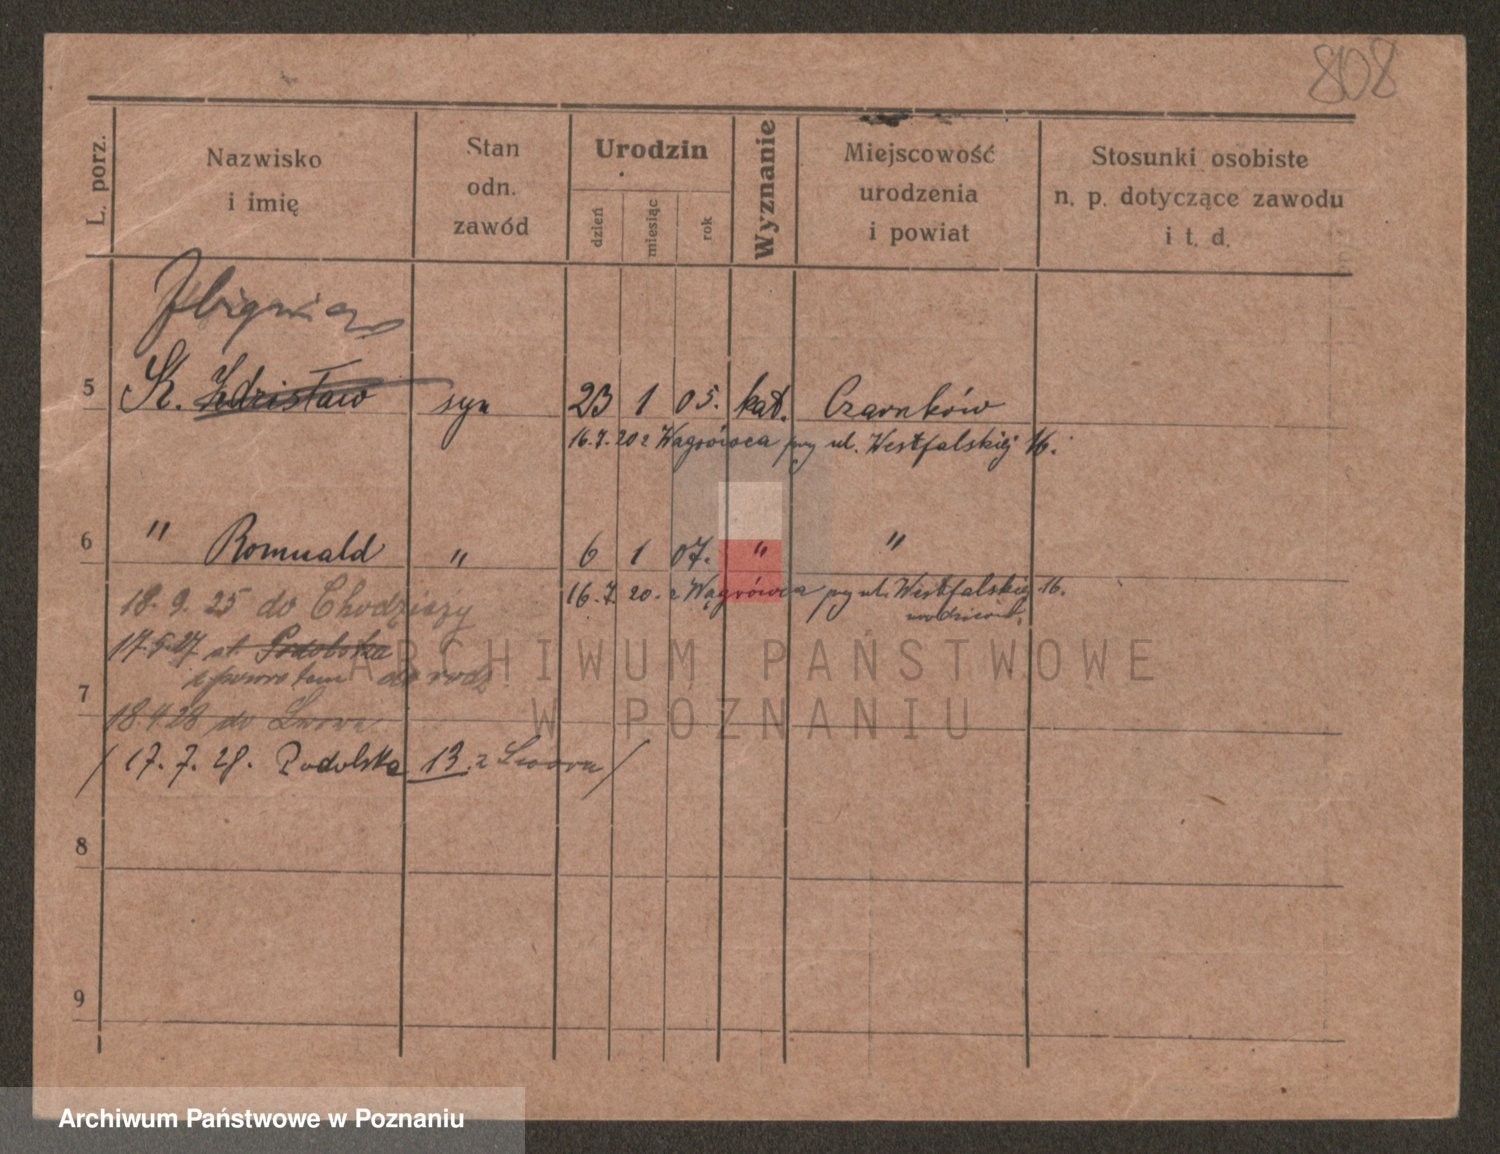 808
L. porz.
Nazwisko
i imię
Stan
odn.
zawód
Urodzin
dzień
miesiąc
rok
Wyznanie
Miejscowość
urodzenia
i powiat
Stosunki osobiste
n. p. dotyczące zawodu
i t. d.
Zbigniew
5 K. Zdzisław syn 23 1 05. kat. Czarnków
16.7.20 z Wągrówca przy ul. Westfalskiej 16.
6 " Romuald " 6 1 07. " "
16.7. 20. z Wągrówca przy ul. Westfalskiej 16.
18.9.25 do Chodzieży
17.5.27 ul. Podolska
z powrotem do rodz.
7
18.4.28 do Lwowa
(17.7.28. Podolska 13. z Lwowa)
8
9
ARCHIWUM PAŃSTWOWE
W POZNANIU
Archiwum Państwowe w Poznaniu